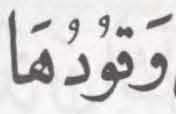 وَقُودُهَا